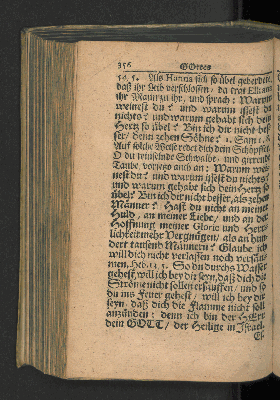 356 GOttes
59. 5. Als Hanna sich so übel geberdete,
daß ihr Leib verschlossen, da trat Elkana
ihr Mann zu ihr, und sprach: Warum
weinest du? und warum issest du
nichts? und warum gehabt sich dein
Hertz so übel? Bin ich dir nicht bes-
ser, denn zehen Söhne? 1. Sam. 1. 8.
Auf solche Weise redet dich dein Schöpfer,
O du winselnde Schwalbe, und girrende
Taube, vorjetzo auch an: Warum wei-
nest du? und warum issest du nichts?
und warum gehabe sich dein Hertz so
übel? Bin ich dir nicht besser, als zehen
Männer? Hast du nicht an meiner
Huld, an meiner Liebe, und an der
Hoffnung meiner Glorie und Herr-
lichkeit mehr Vergnügen, als an hun-
dert tausend Männern? Glaube, ich
will dich nicht verlassen noch versäu-
men, Heb. 13, 5. So du durchs Wasser
gehest, will ich bey dir seyn, daß dich die
Ströme nicht sollen ersäuffen, und so
du ins Feuer gehest, will ich bey dir
seyn, daß dich die Flamme nicht soll
anzünden: denn ich bin der HErr
dein GOTT, der Heilige in Israel,